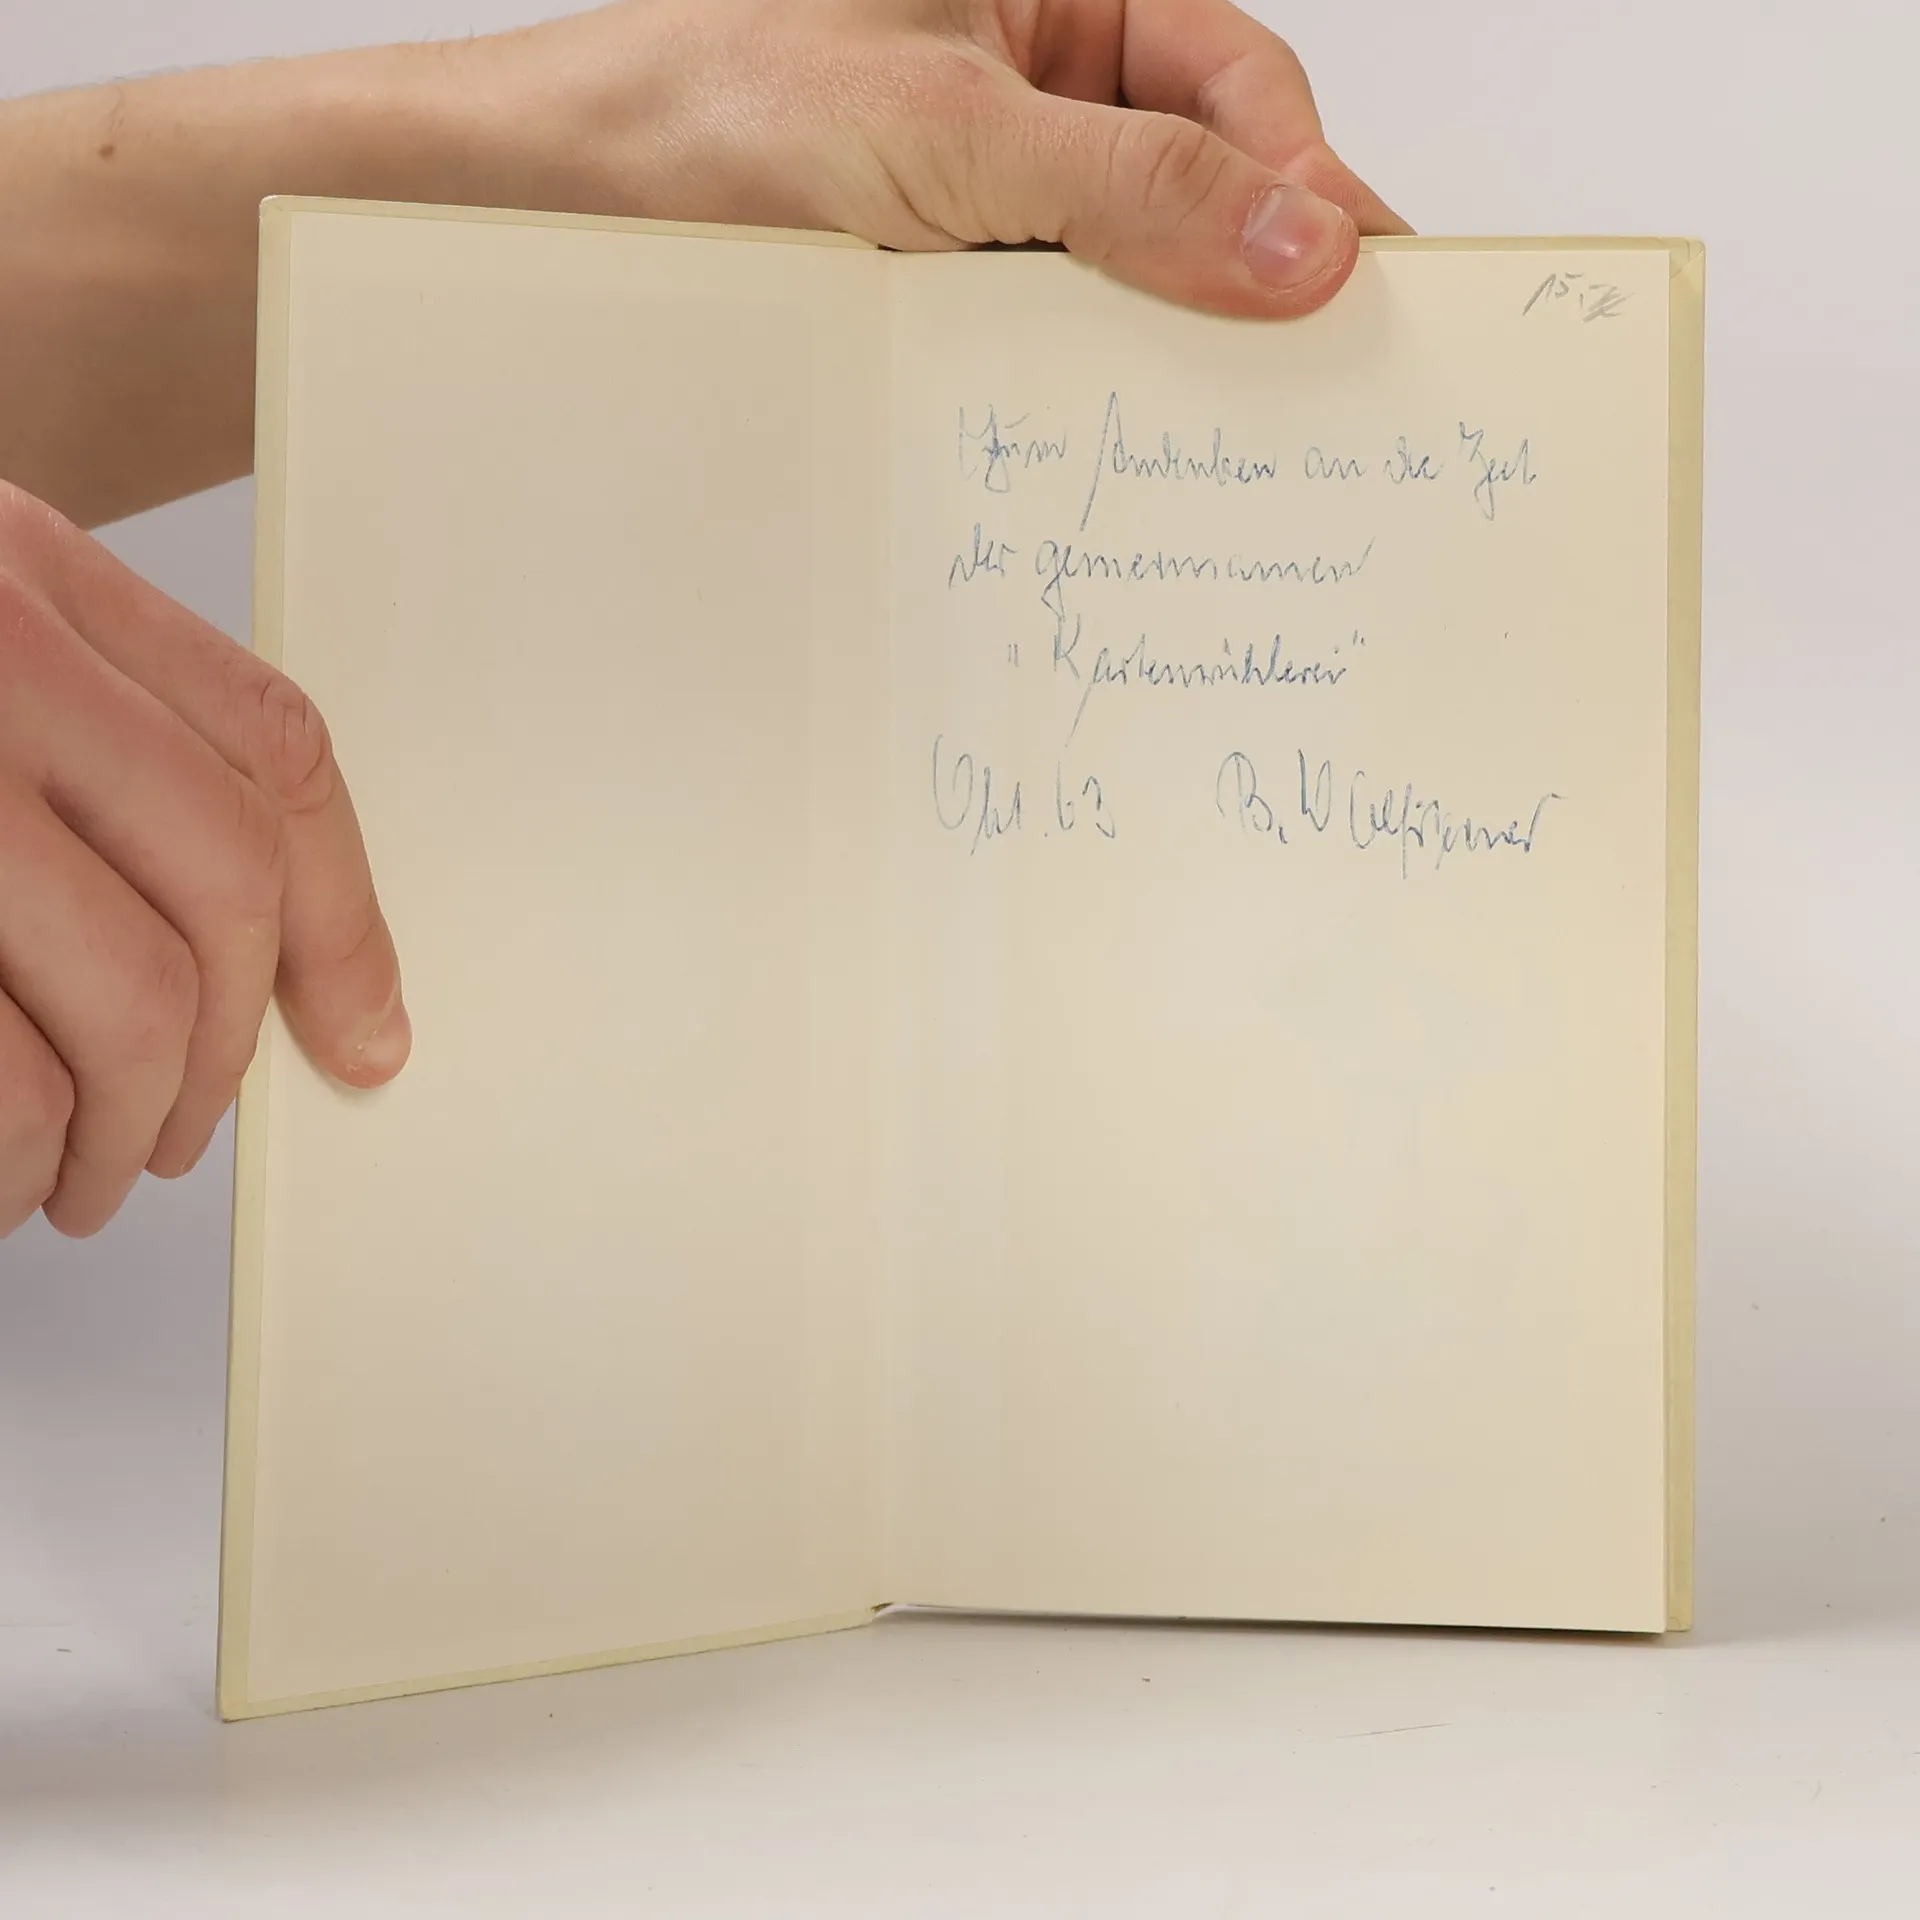 15,-
Zum Andenken an die Zeit
der gemeinsamen
"Kartenwühlerei"
Okt. 63 B.